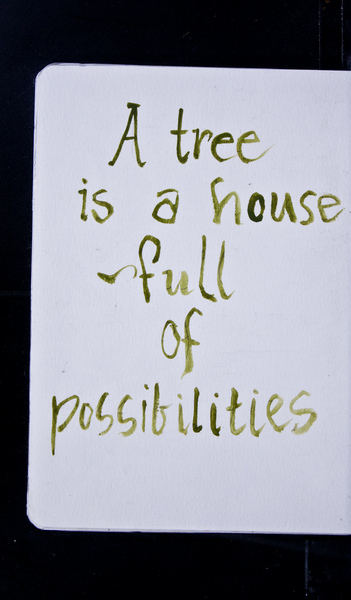 A tree
is a house
full
of
possibilities